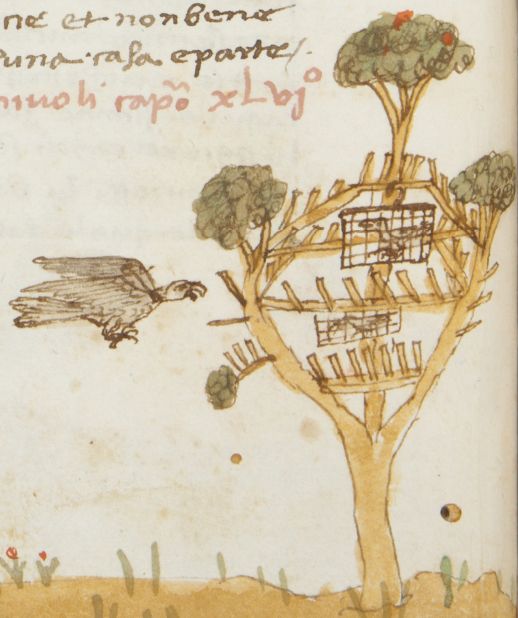 cie et non bene
una casa e parte
nuvoli capo xLvjo